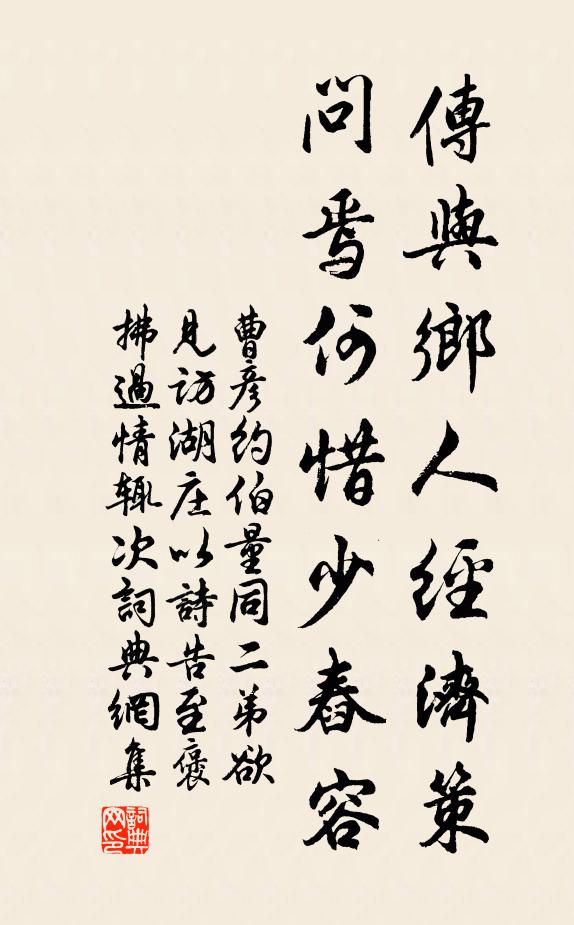 傳與鄉人經濟策
問焉何惜少舂容
曹彦約伯量同二弟欲
見訪湖庄以詩告至褒
拂過情輒次詞典網集
詞典
网印